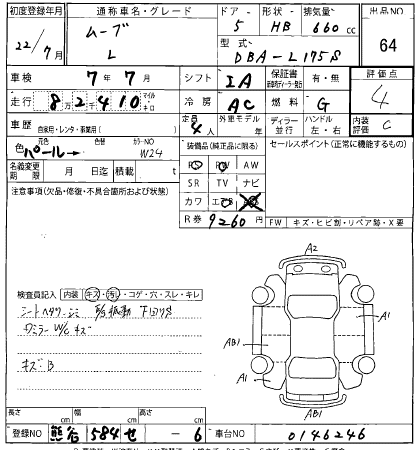 初度登録年月 通称車名・グレード ドア・形状・排気量 出品NO
22/7月 ムーブ 5 HB 660cc 64
L 型式 DBA-L175S
車検 7年7月 シフト IA 保証書 有・無 評価点
走行 8万2千410 マイル・キロ 冷房 AC 燃料 G 4
車歴 自家用・レンタ・事業用( ) 定員 4人 外車モデル 年 ディラー・並行 ハンドル 左・右 内装 C
色 パール 元色 色替 カラーNO W24 装備品(純正品に限る) セールスポイント(正常に機能するもの)
名義変更期限 月 日迄 積載 t PS PW AW
注意事項(欠品・修復・不具合箇所および状態) SR TV ナビ
カワ エアB
R券 9260円 FW キズ・ヒビ割・リペア跡・X要
A2
検査員記入 内装 キズ・汚れ・コゲ・穴・スレ・キレ
A1
AB1
キズB
A1
AB1
長さ cm 幅 cm 高さ cm
登録NO 熊谷 584 せ -6 車台NO 0146246